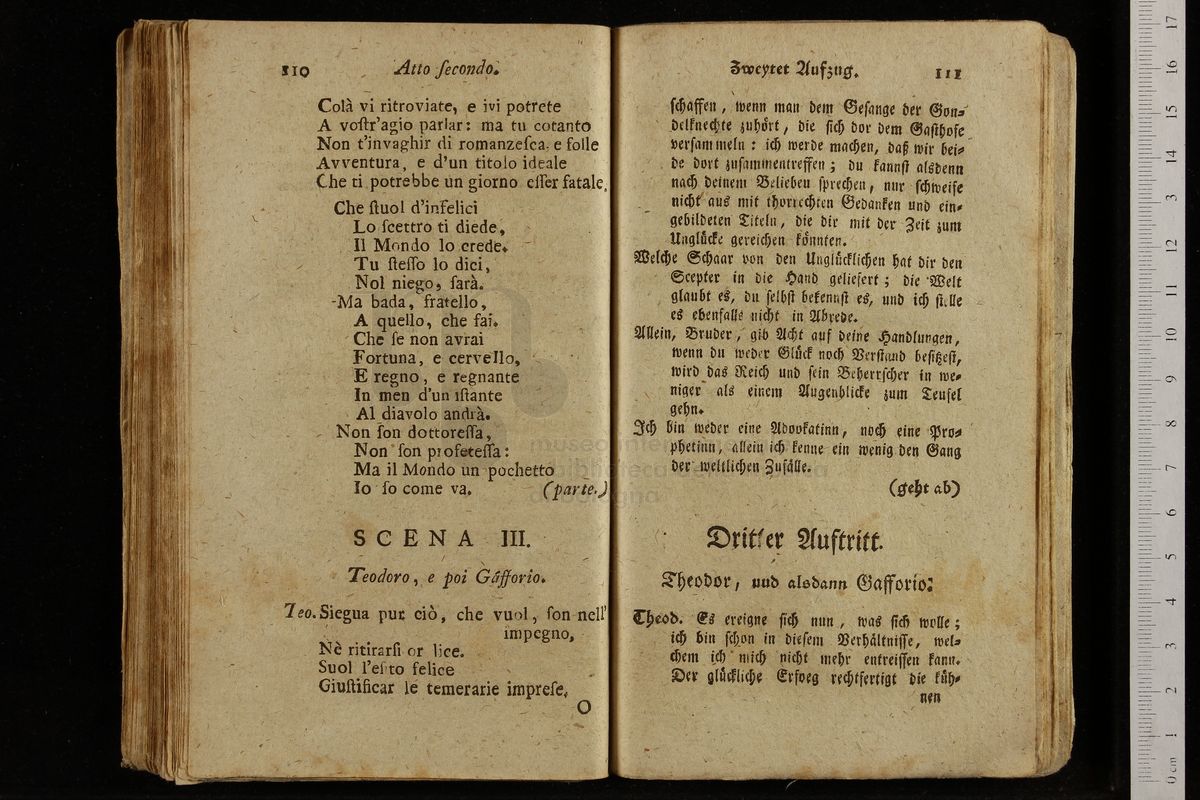 110
Atto ſecondo.
Colà vi ritroviate, e ivi potrete
A voſtr'agio parlar: ma tu cotanto
Non t'invaghir di romanzeſca, e folle
Avventura, e d'un titolo ideale
Che ti potrebbe un giorno eſſer fatale,
Che ſtuol d'infelici
Lo ſcettro ti diede,
Il Mondo lo crede.
Tu ſteſſo lo dici,
Nol niego, ſarà.
Ma bada, fratello,
A quello, che fai.
Che ſe non avrai
Fortuna, e cervello,
E regno, e regnante
In men d'un iſtante
Al diavolo andrà.
Non ſon dottoreſſa,
Non ſon profeteſſa:
Ma il Mondo un pochetto
Io ſo come va. (parte.)
SCENA III.
Teodoro, e poi Gafforio.
Teo. Siegua pur ciò, che vuol, ſon nell'
impegno,
Nè ritirarſi or lice.
Suol l'eſito felice
Giuſtificar le temerarie impreſe,
O
Zweytet Aufzug.
111
ſchaffen, wenn man dem Geſange der Gon-
delknechte zuhört, die ſich vor dem Gaſthofe
verſammeln: ich werde machen, daß wir bei-
de dort zuſammentreffen; du kannſt alsdenn
nach deinem Belieben ſprechen, nur ſchweife
nicht aus mit thorrechten Gedanken und ein-
gebildeten Titeln, die dir mit der Zeit zum
Unglücke gereichen könnten.
Welche Schaar von den Unglücklichen hat dir den
Scepter in die Hand geliefert; die Welt
glaubt es, du ſelbſt bekennſt es, und ich ſtelle
es ebenfalls nicht in Abrede.
Allein, Bruder, gib Acht auf deine Handlungen,
wenn du weder Glück noch Verſtand beſitzeſt,
wird das Reich und ſein Beherrſcher in we-
niger als einem Augenblicke zum Teufel
gehn.
Ich bin weder eine Advokatinn, noch eine Pro-
phetinn, allein ich kenne ein wenig den Gang
der weltlichen Zufälle.
(geht ab)
Dritter Auftritt.
Theodor, und alsdann Gafforio.
Theod. Es ereigne ſich nun, was ſich wolle;
ich bin ſchon in dieſem Verhältniſſe, wel-
chem ich mich nicht mehr entreiſſen kann.
Der glückliche Erfoeg rechtfertigt die küh-
nen